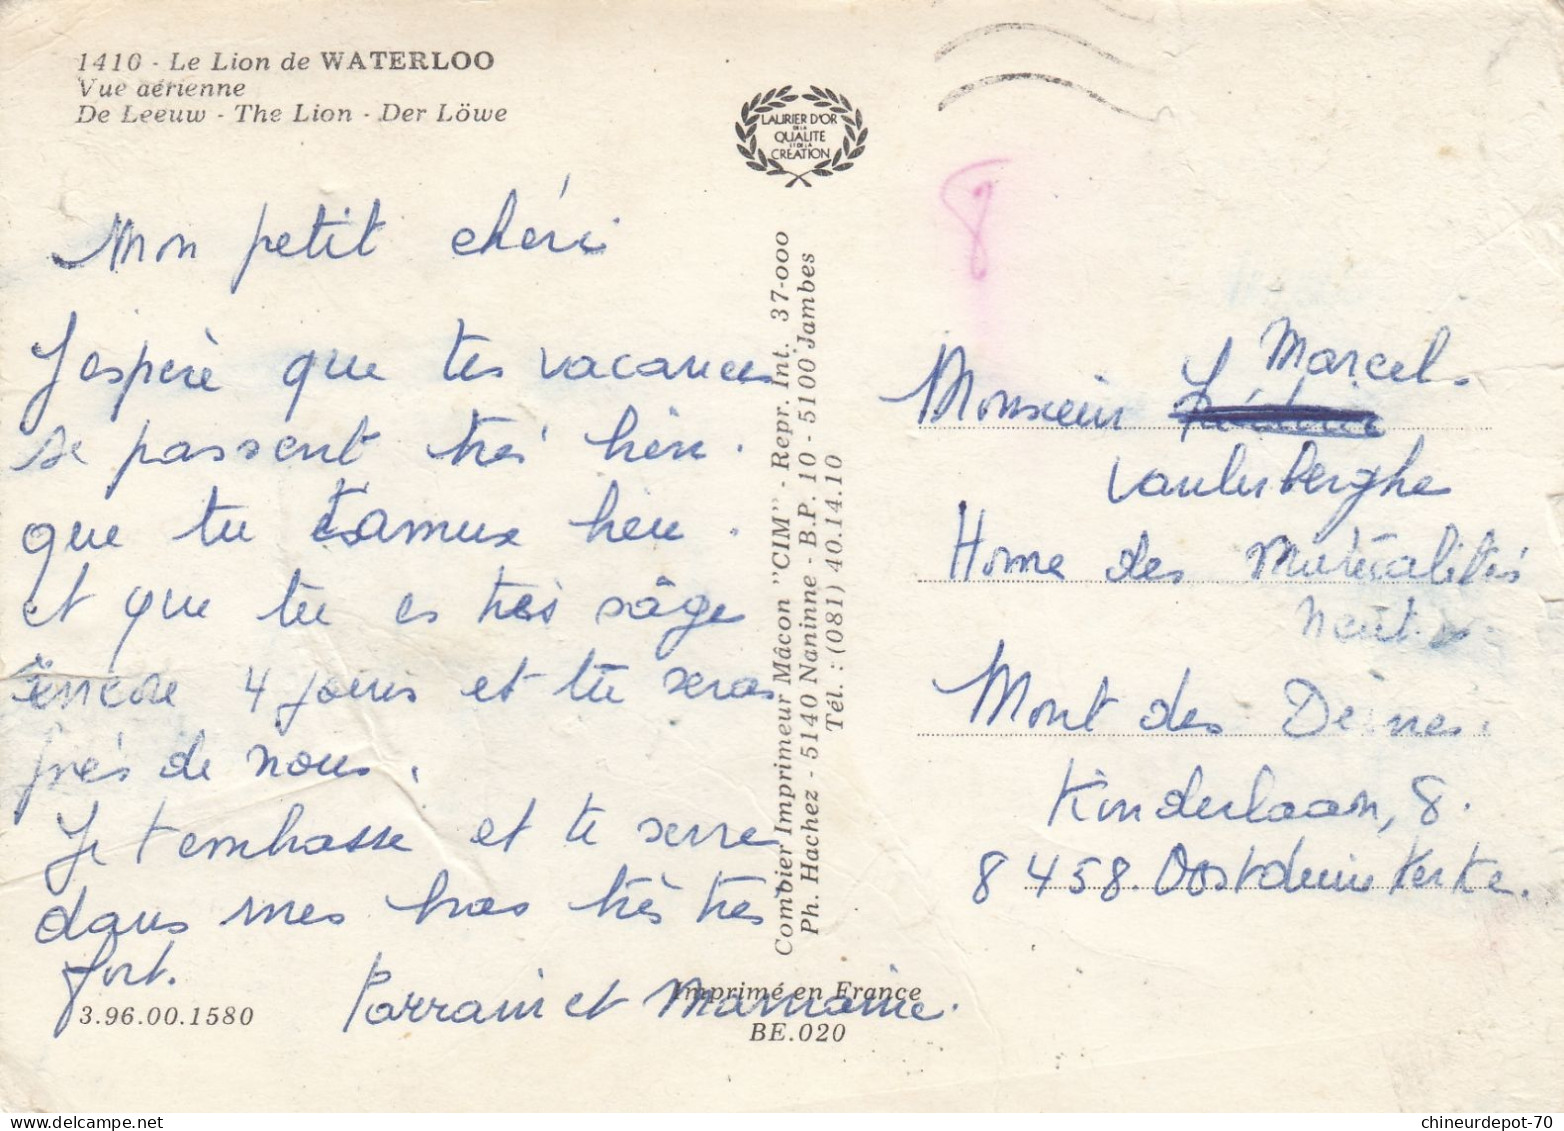 1410 - Le Lion de WATERLOO
Vue aérienne
De Leeuw - The Lion - Der Löwe
LAURIER D'OR
DE LA
QUALITE
ET DE LA
CREATION
8
Mon petit chéri
J'espère que tes vacances
se passent très bien.
que tu t'amuse bien.
et que tu es très sâge
encore 4 jours et tu seras
près de nous.
Je t'embrasse et te serre
dans mes bras très très
fort.
Parrain et Marraine.
3.96.00.1580
Combier Imprimeur Mâcon "CIM" - Repr. Int. 37-000
Ph. Hachez - 5140 Naninne - B.P. 10 - 5100 Jambes
Tél. : (081) 40.14.10
Imprimé en France
BE.020
Marcel.
Monsieur
Vanlerberghe
Home des Mutualités
Neut
Mont des Dunes.
Kinderlaan, 8.
8458. Oostduinkerke.
chineurdepot-70